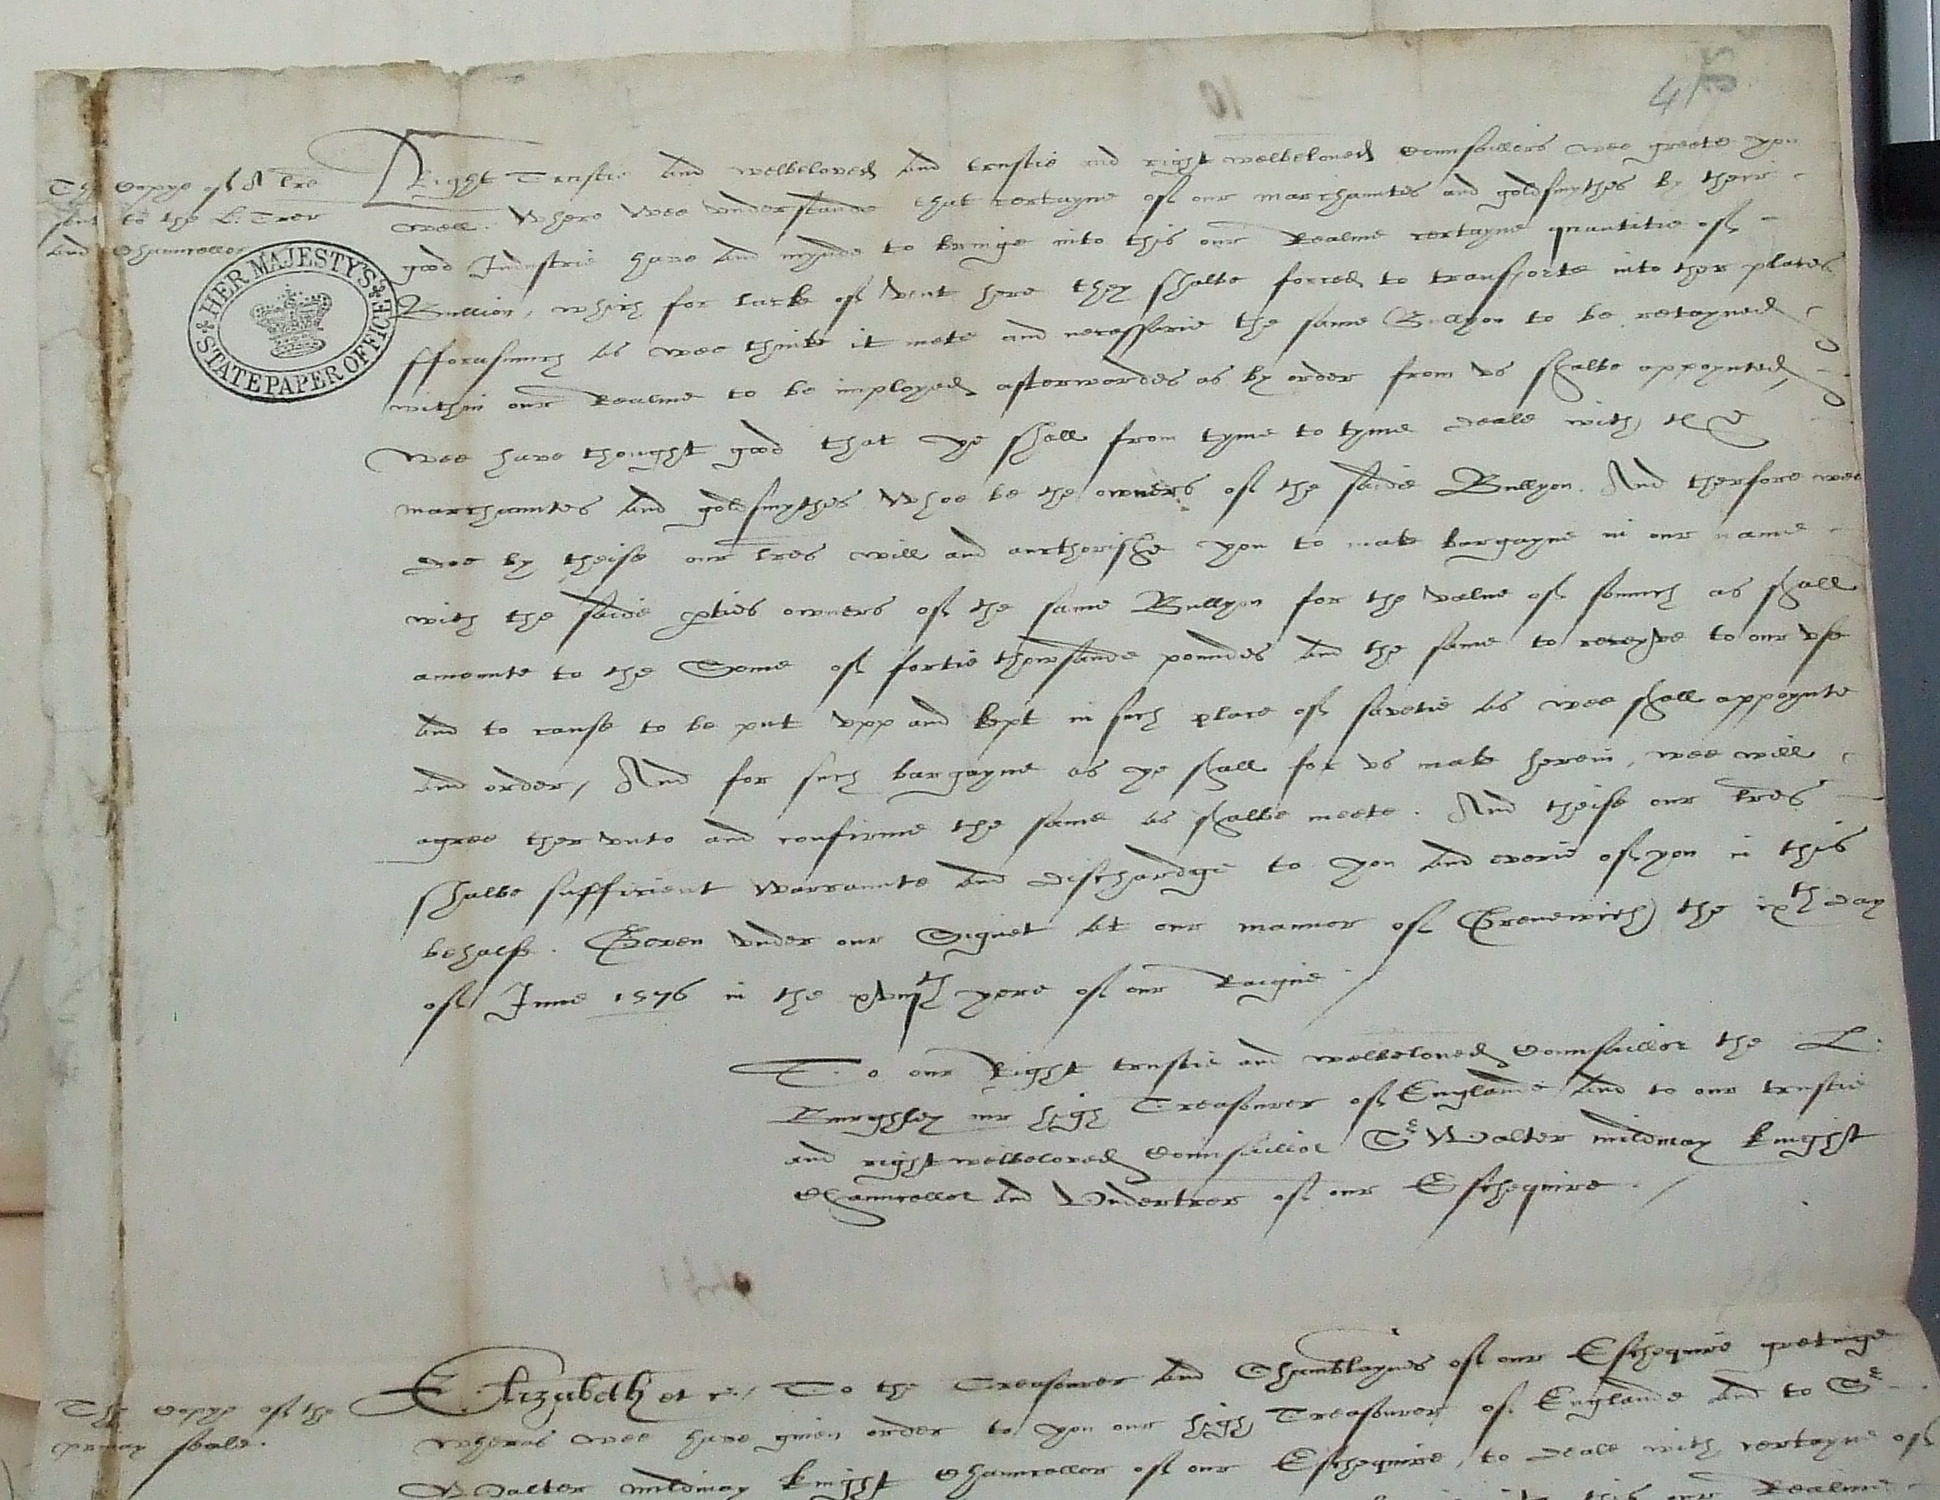 41
The Copye of A lre
sent to the L. Trer
and Chauncellor
HER MAJESTY'S STATE PAPER OFFICE
Right Trustie and welbeloved and trustie and right welbeloued Counsaillors wee greete you
well. Where wee vnderstande that certayne of our marchauntes and goldsmythes by their
good Industrie have and mynde to bringe into this our Realme certayne quantitie of
Bullion, which for lacke of vent here they shalbe forced to transporte into ther places
fforasmuch as wee thinke it mete and necessarie the same Bullyon to be retayned
within our Realme to be imployed afterwardes as by order from vs shalbe appoynted,
wee have thought good that ye shall from tyme to tyme deale with the
marchauntes and goldsmythes whoe be the owners of the saide Bullyon. And therfore wee
doe by theise our lres will and aucthorishe you to make bargayne in our name
with the saide pties owners of the same Bullyon for the value of somuch as shall
amounte to the Some of fortie thowsande poundes and the same to receyve to our vse
and to cause to be put vpp and kept in such place of savetie as wee shall appoynte
and order, And for such bargayne as ye shall for vs make herein, wee will
agree ther vnto and confirme the same as shalbe meete. And theise our lres
shalbe sufficient warraunte and dischardge to you and everie of you in this
behalfe. Geven vnder our Signet at our mannor of Grenewich the ixth day
of June 1576 in the xviijth yere of our Raigne.
To our Right trustie and welbeloued Counsaillor the L.
Burghley our high Treasourer of Englande and to our trustie
and right welbeloved Counsaillor Sr Walter mildmay knight
Chauncellor and Vndertrer of our Eschequire.
The Copye of the
privay seale.
Elizabeth et c. / To the Treasourer and Chamblaynes of our Eschequire gretinge
wheras wee have given order to you our high Treasourer of Englande and to Sr
Walter mildmay knight Chauncellor of our Eschequire, to deale with certayne of
this our Realme